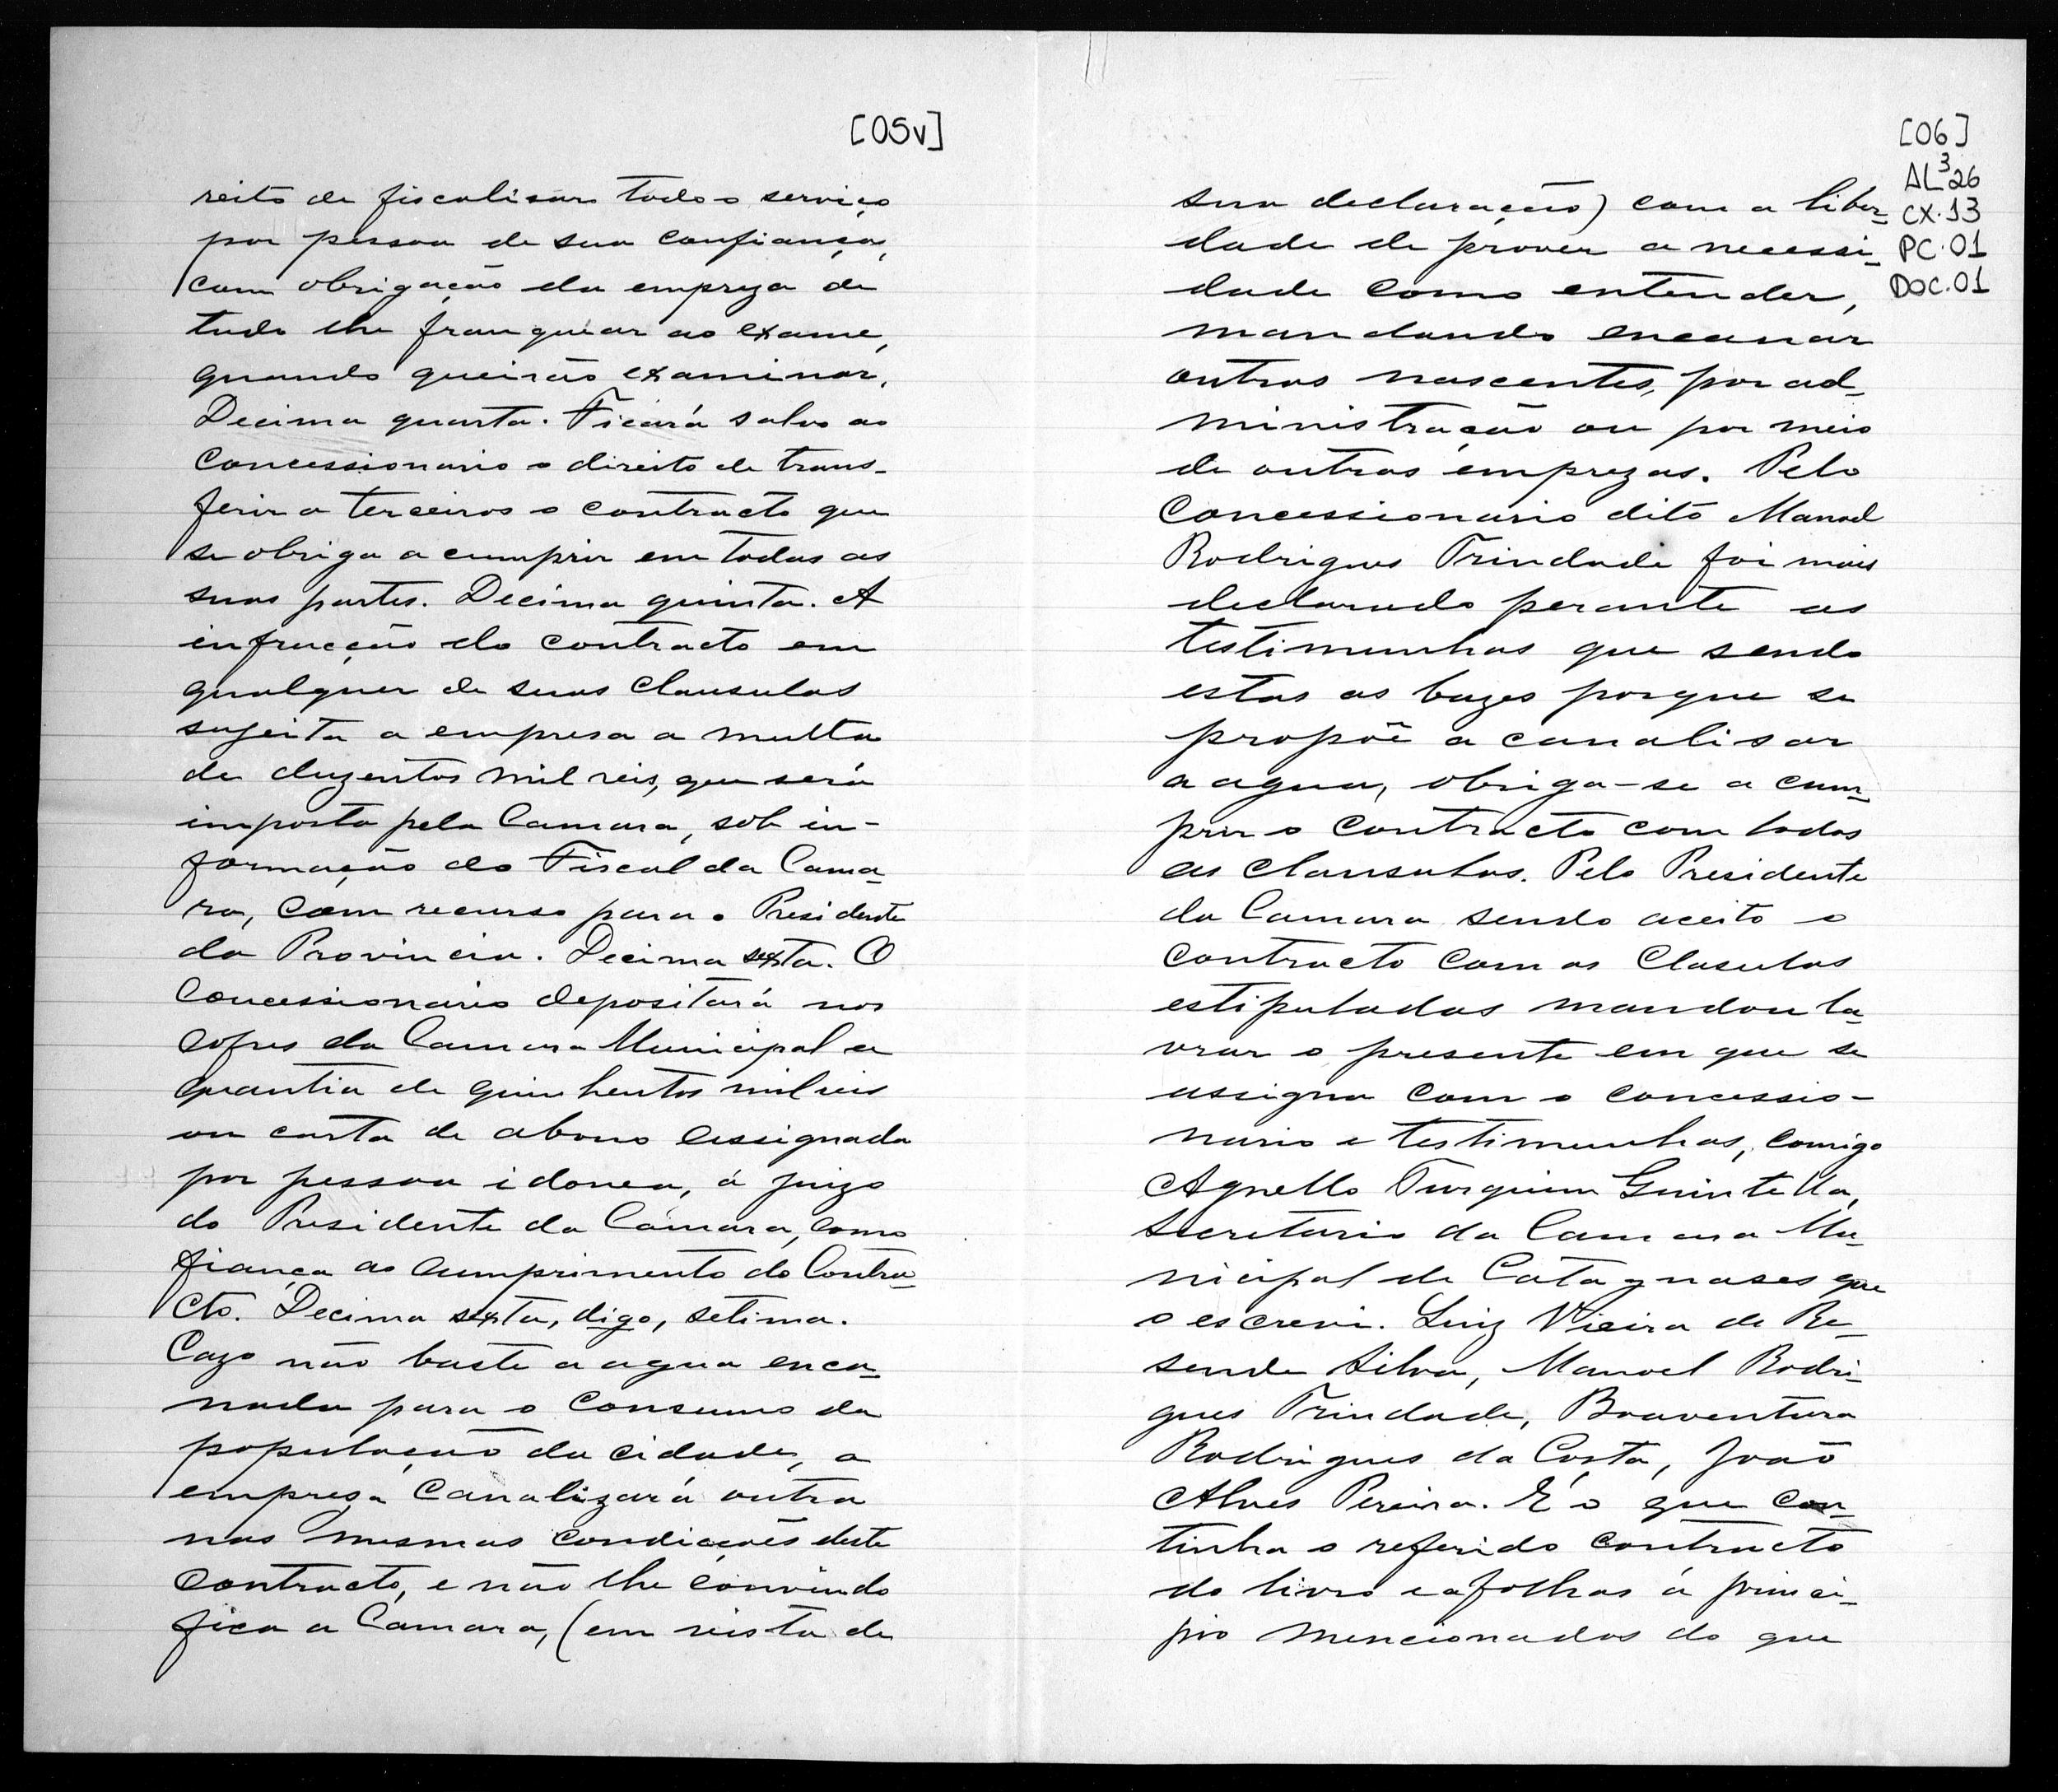 [05v]
reito de fiscalisar todo o serviço
por pessoa de sua confiança,
com obrigação da empreza de
tudo lhe franquear ao exame,
quando queirão examinar.
Decima quarta. Ficará salvo ao
Concessionario o direito de trans-
ferir a terceiros o contracto que
se obriga a cumprir em todas as
suas partes. Decima quinta. A
infracção do contracto em
qualquer de suas clausulas
sugeita a empresa a multa
de duzentos mil reis, que será
imposta pela Camara, sob in-
formação do Fiscal da Cama-
ra, com recurso para o Presidente
da Provincia. Decima sexta. O
Concessionario depositará nos
Cofres da Camara Municipal a
quantia de quinhentos mil reis
ou carta de abono assignada
por pessoa idonea, á juizo
do Presidente da Camara, como
fiança ao cumprimento do Contra-
cto. Decima sexta, digo, setima.
Cazo não baste a agua enca-
nada para o consumo da
população da cidade, a
empreza canalizará outra
nas mesmas condicções deste
Contracto, e não lhe convindo
fica a Camara, (em vista de
[06]
AL³26
CX.13
PC.01
DOC.01
sua declaração) com a liber-
dade de prover a necessi-
dade como entender,
mandando encanar
outras nascentes, por ad-
ministração ou por meio
de outras emprezas. Pelo
Concessionario dito Manoel
Rodrigues Trindade foi mais
declarado perante as
testimunhas que sendo
estas as bazes porque se
propõe a canalisar
a agua, obriga-se a cum-
prir o contracto com todas
as clausulas. Pelo Presidente
da Camara sendo aceito o
contracto com as Clasulas
estipuladas mandou la-
vrar o presente em que se
assigna com o concessio-
nario e testimunhas, comigo
Agnello Turquim Quintella,
Secretario da Camara Mu-
nicipal de Catagnases que
o escrevi. Luiz Vieira de Re-
sende Silva, Manoel Rodri-
gues Trindade, Boaventura
Rodrigues da Costa, João
Alves Pereira. É o que con-
tinha o referido contracto
do livro e a folhas á princi-
pio mencionados do que